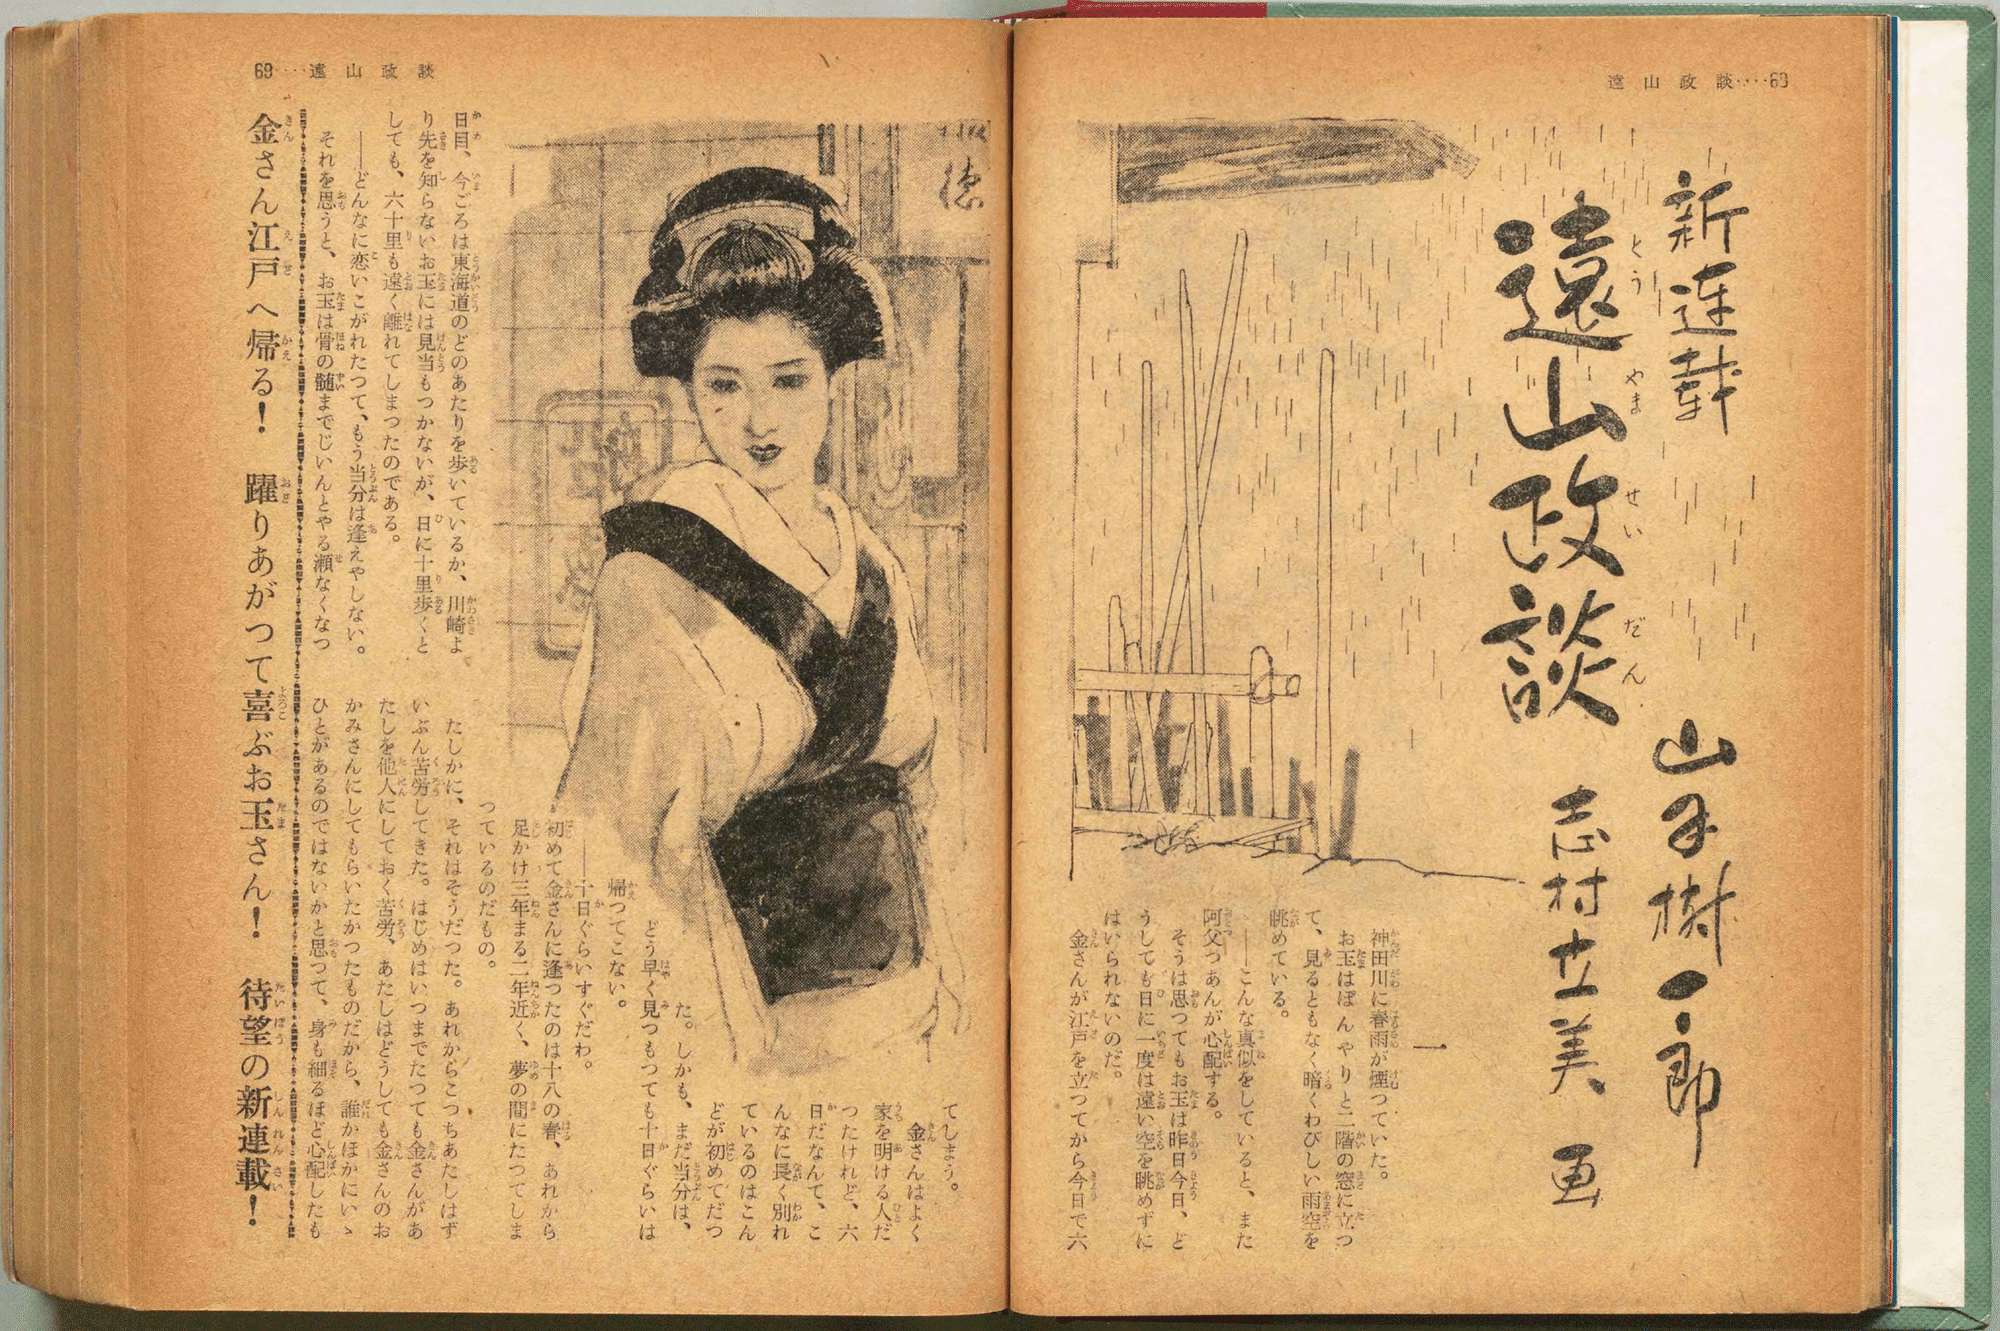 遠山政談‥‥68
新連載
遠山政談
とうやませいだん
山手樹一郎
志村立美 画
一
神田川に春雨が煙つていた。
お玉はぼんやりと二階の窓に立つ
て、見るともなく暗くわびしい雨空を
眺めている。
――こんな真似をしていると、また
阿父つあんが心配する。
そうは思つてもお玉は昨日今日、ど
うしても日に一度は遠い空を眺めずに
はいられないのだ。
金さんが江戸を立つてから今日で六
69‥‥遠山政談
日目、今ごろは東海道のどのあたりを歩いているか、川崎よ
り先を知らないお玉には見当もつかないが、日に十里歩くと
しても、六十里も遠く離れてしまつたのである。
――どんなに恋いこがれたつて、もう当分は逢えやしない。
それを思うと、お玉は骨の髄までじいんとやる瀬なくなつ
てしまう。
金さんはよく
家を明ける人だ
つたけれど、六
日だなんて、こ
んなに長く別れ
ているのはこん
どが初めてだつ
た。しかも、まだ当分は、
どう早く見つもつても十日ぐらいは
帰つてこない。
――十日ぐらいすぐだわ。
初めて金さんに逢つたのは十八の春、あれから
足かけ三年まる二年近く、夢の間にたつてしま
つているのだもの。
たしかに、それはそうだつた。あれからこつちあたしはず
いぶん苦労してきた。はじめはいつまでたつても金さんがあ
たしを他人にしておく苦労、あたしはどうしても金さんのお
かみさんにしてもらいたかつたものだから、誰かほかにいゝ
ひとがあるのではないかと思つて、身も細るほど心配したも
金さん江戸へ帰る！　躍りあがつて喜ぶお玉さん！　待望の新連載！